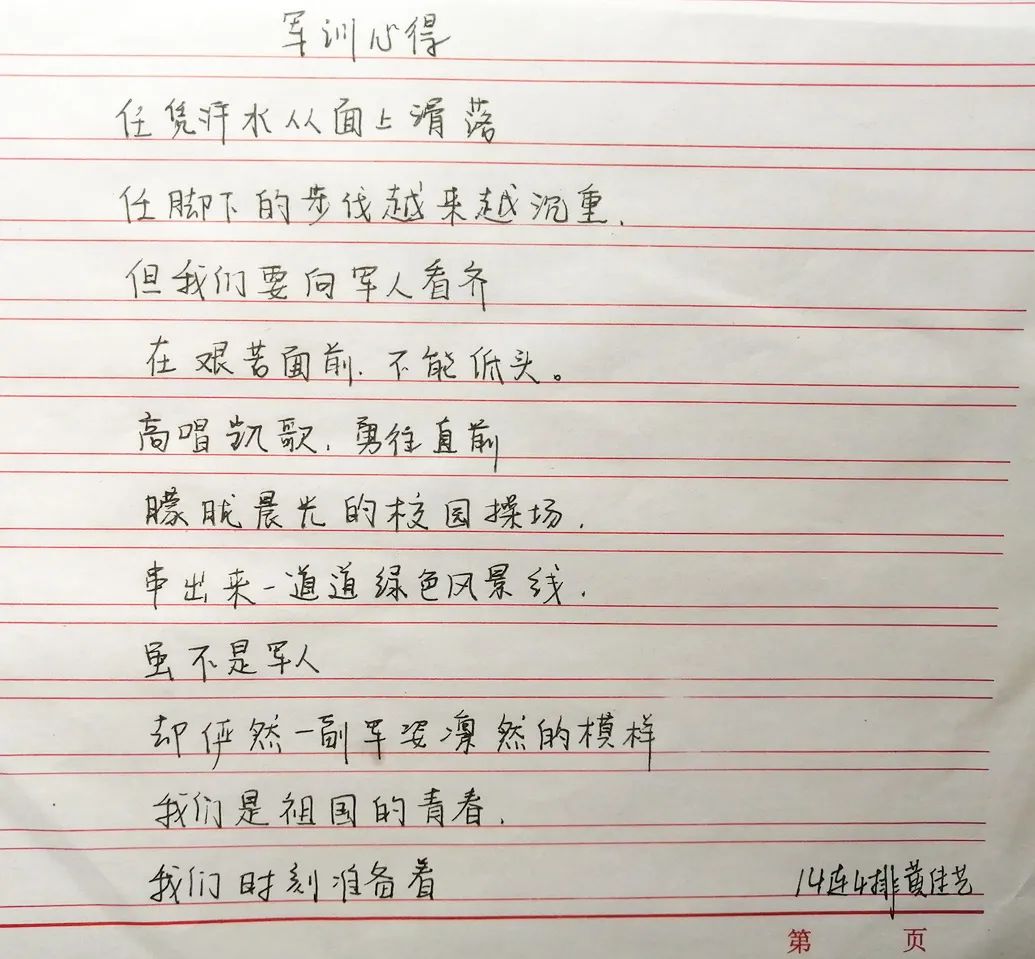 军训心得
任凭汗水从面上滑落
任脚下的步伐越来越沉重.
但我们要向军人看齐
在艰苦面前.不能低头。
高唱凯歌.勇往直前
朦胧晨光的校园操场.
串出来一道道绿色风景线.
虽不是军人
却俨然一副军姿凛然的模样
我们是祖国的青春.
我们时刻准备着
14连4排黄佳艺
第 页